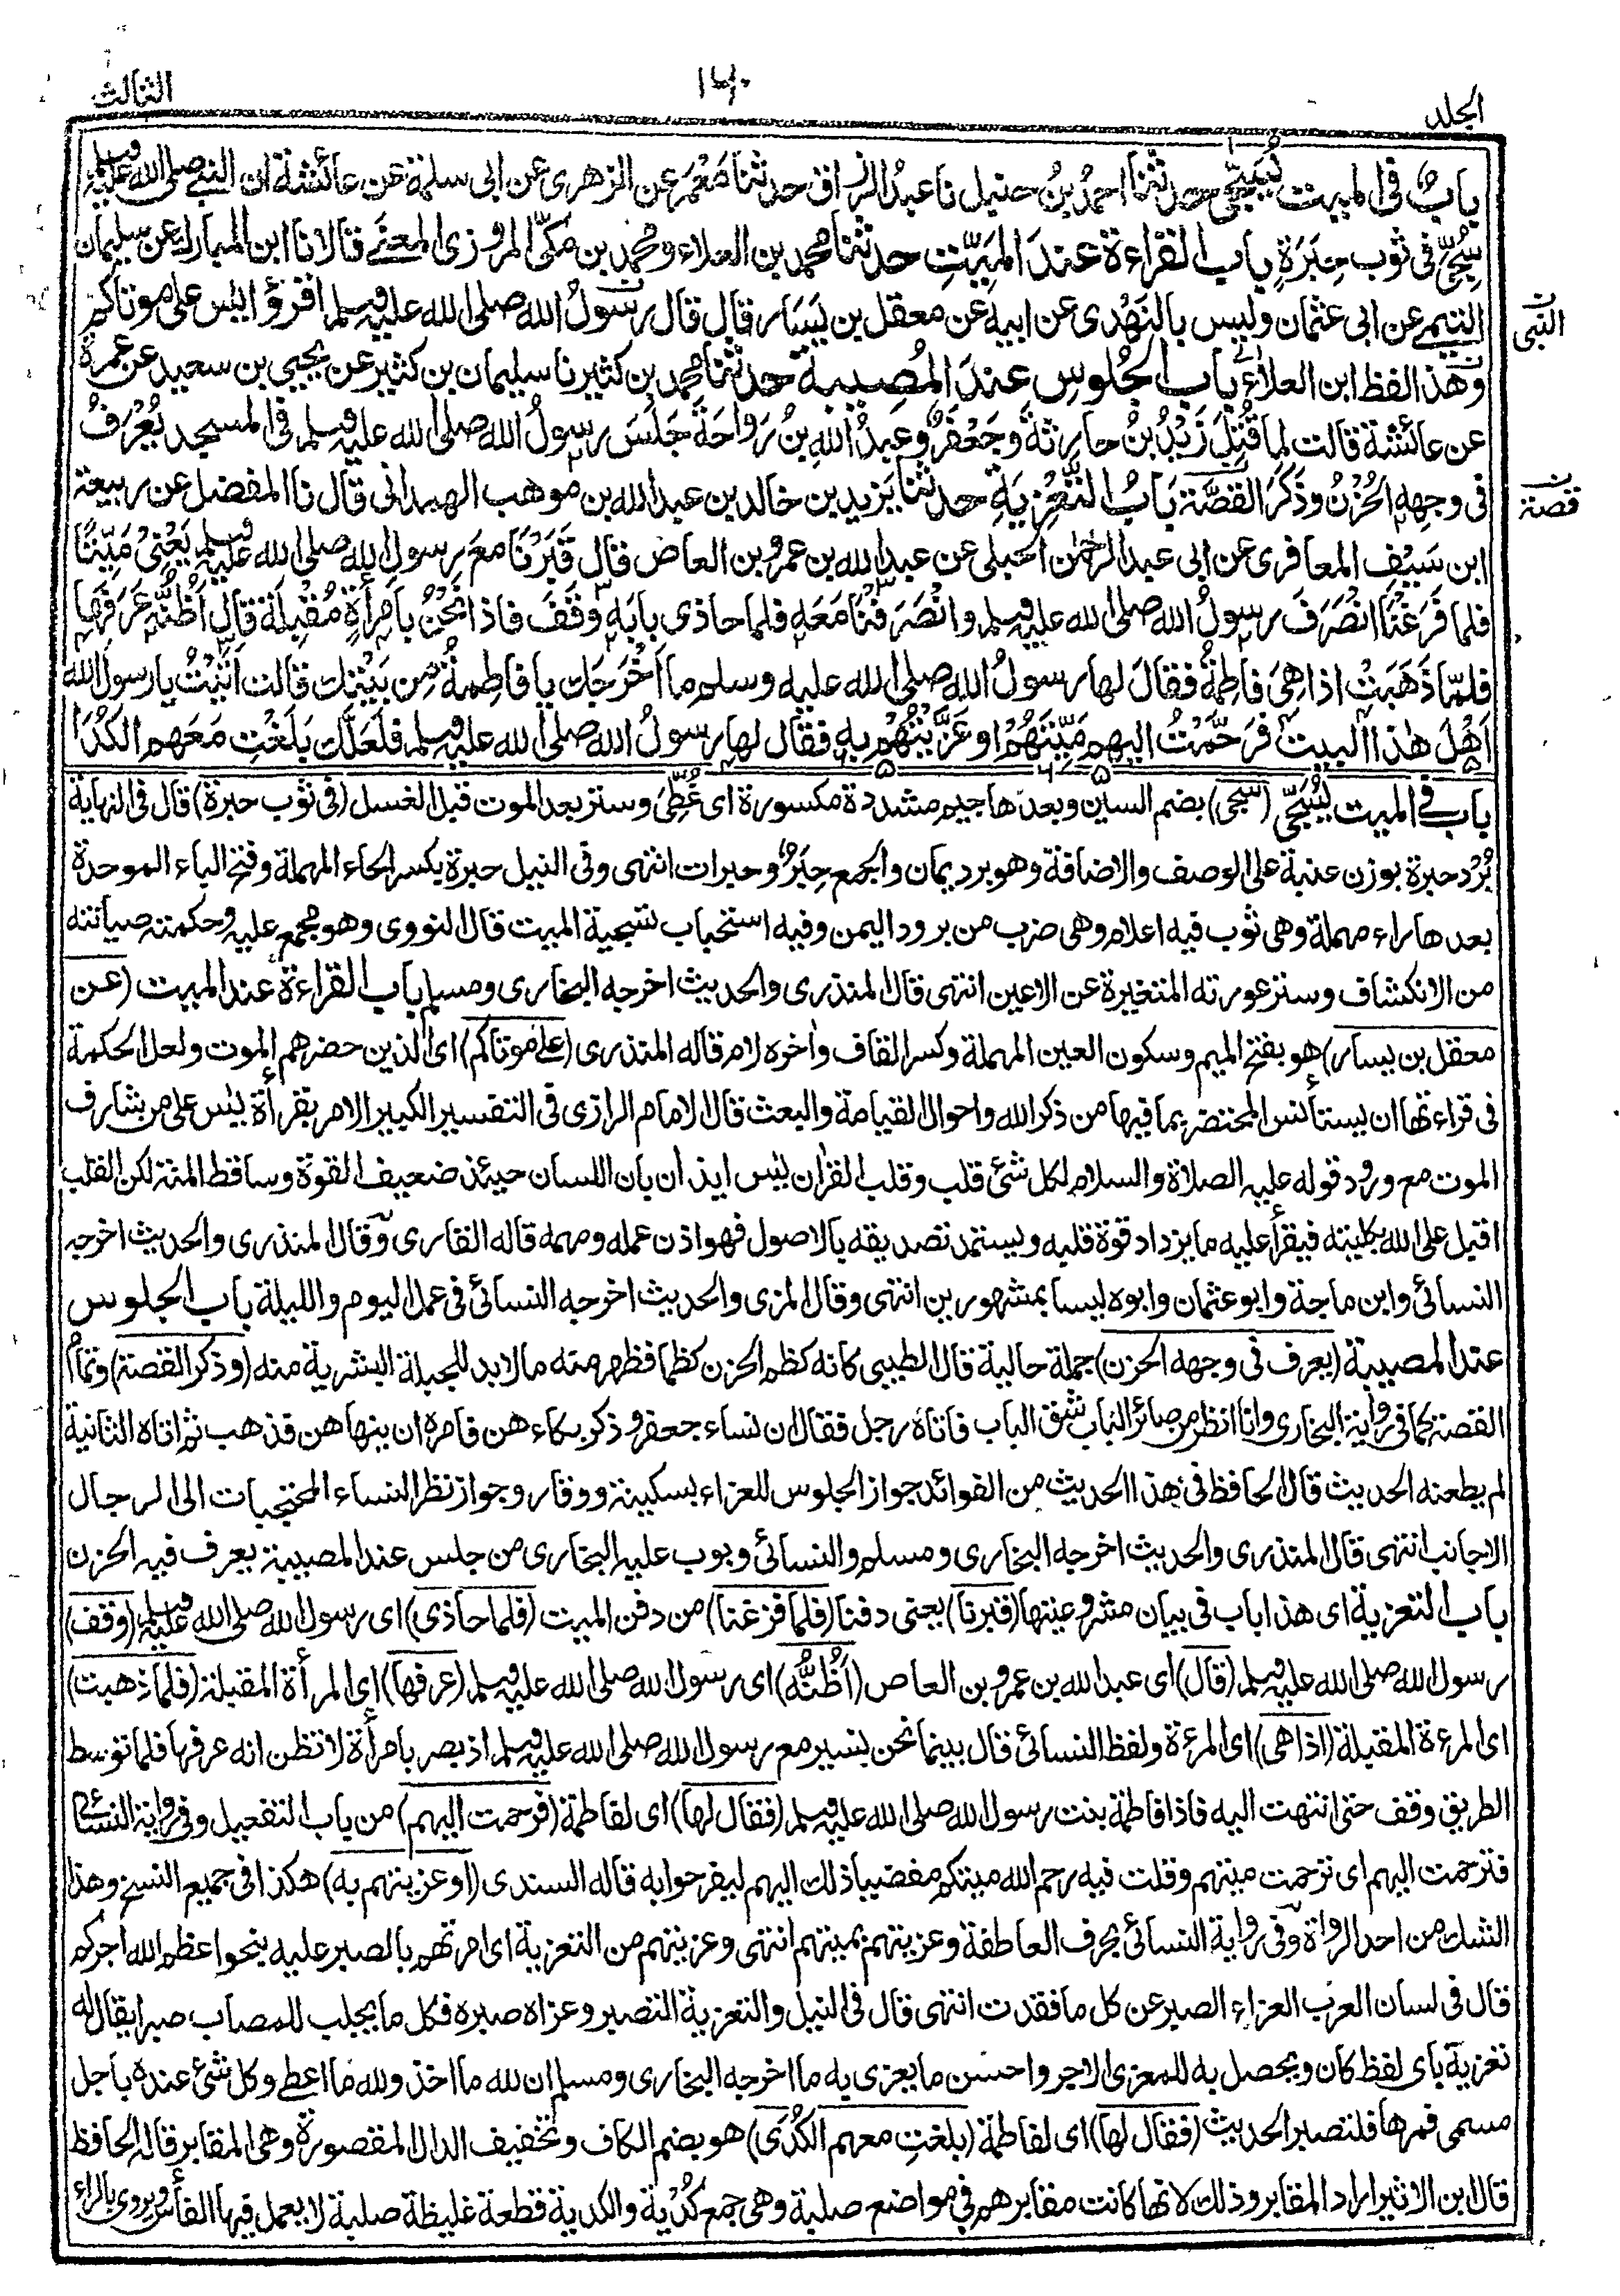 الجلد
١٦٠
الثالث
باب في الميت يُسَجّى حدثنا احمد بن حنبل نا عبد الرزاق حدثنا مَعْمَر عن الزهرى عن ابى سلمة عن عائشة ان النبي صلى الله عليه وسلم
سُجِّيَ فى ثوب حِبَرَةٍ باب القراءة عندَ الميّتِ حدثنا محمد بن العلاء ومحمد بن مكّى المروزى المعنى قالا نا ابن المبارك عن سليمان
التيمى عن ابى عثمان وليس بالنَهْدى عن ابيه عن معقل بن يَسَار قال قال رسولُ الله صلى الله عليه وسلم اقرؤا يٰس على موتاكم
وهذا لفظ ابن العلاء باب الجُلوسِ عندَ المُصيبة حدثنا محمد بن كثير نا سليمان بن كثير عن يحيى بن سعيد عن عمرة
عن عائشة قالت لما قُتِلَ زَيْدُ بنُ حارثةَ وجَعْفَرٌ وعبدُ اللهِ بنُ رَوَاحَةَ جَلَسَ رسولُ الله صلى الله عليه وسلم فى المسجد يُعْرَفُ
فى وجهِهِ الحُزْنُ وذَكَرَ القصَّة بَابُ التَّعْزِيَةِ حدثنا يزيد بن خالد بن عبد الله بن موهب الهمدانى قال نا المفضل عن ربيعة
ابن سَيْفِ المعافرى عن ابى عبد الرحمٰن الحبلى عن عبد الله بن عمرو بن العاص قال قَبَرْنَا معَ رسولِ الله صلى الله عليه وسلم يَعْنِىْ مَيّتًا
فلما فَرَغْنَا انْصَرَفَ رسولُ الله صلى الله عليه وسلم وانْصَرَفْنَا مَعَه فلما حاذى بابَه وَقَفَ فاذا نَحْنُ بامرأةٍ مُقْبِلَة قال أظُنُّه عَرَفَهَا
فلمّا ذَهَبَتْ اذا هِىَ فاطمةُ فقالَ لها رسولُ الله صلى الله عليه وسلم ما اَخْرَجَكِ يا فاطِمةُ مِن بَيْتِكِ قالت اَتَيْتُ يا رسول الله
اَهْلَ هٰذا البيت فرَحَّمْتُ اليهم مَيِّتَهُمْ او عَزَّيْتُهُمْ بِه فقال لها رسولُ الله صلى الله عليه وسلم فلعَلَّكِ بَلَغْتِ مَعَهم الكُدَا
ن النبى
ن قصته
باب فى الميت يُسَجّى (سُجى) بضم السين وبعدها جيم مشددة مكسورة اى غُطِّىَ وستر بعد الموت قبل الغسل (فى ثوب حبرة) قال فى النهاية
بُرْد حبرة بوزن عنبة على الوصف والاضافة وهو برد يمان والجمع حِبَرٌ وحبرات انتهى وفى النيل حبرة بكسر الحاء المهملة وفتح الباء الموحدة
بعدها راء مهملة وهى ثوب فيه اعلام وهى ضرب من برود اليمن وفيه استحباب تسجية الميت قال النووى وهو مجمع عليه وحكمته صيانته
من الانكشاف وستر عورته المتغيرة عن الاعين انتهى قال المنذرى والحديث اخرجه البخارى ومسلم باب القراءة عند الميت (عن
معقل بن يسار) هو بفتح الميم وسكون العين المهملة وكسر القاف واخره لام قاله المنذرى (على موتاكم) اى الذين حضرهم الموت ولعل الحكمة
فى قراءتها ان يستأنس المحتضر بما فيها من ذكر الله واحوال القيامة والبعث قال الامام الرازى فى التفسير الكبير الامر بقرأة يٰس على من شارف
الموت مع ورود قوله عليه الصلاة والسلام لكل شئ قلب وقلب القران يٰس ايذان بان اللسان حيئذ ضعيف القوة وساقط المنة لكن القلب
اقبل على الله بكليته فيقرأ عليه ما يزداد قوة قلبه ويستمد تصديقه بالاصول فهو اذن عمله ومهمه قاله القارى وقال المنذرى والحديث اخرجه
النسائى وابن ماجة وابو عثمان وابوه ليسا بمشهورين انتهى وقال المزى والحديث اخرجه النسائى فى عمل اليوم والليلة باب الجلوس
عند المصيبة (يعرف فى وجهه الحزن) جملة حالية قال الطيبى كانه كظم الحزن كظما فظهر منه ما لابد للجبلة البشرية منه (وذكر القصة) وتمام
القصة كما فى رواية البخارى وانا انظر من صائر الباب شق الباب فاتاه رجل فقال ان نساء جعفر وذكر بكاءهن فامره ان ينهاهن فذهب ثم اتاه الثانية
لم يطعنه الحديث قال الحافظ فى هذا الحديث من الفوائد جواز الجلوس للعزاء بسكينة ووقار وجواز نظر النساء المحتجبات الى الرجال
الاجانب انتهى قال المنذرى والحديث اخرجه البخارى ومسلم والنسائى وبوب عليه البخارى من جلس عند المصيبة يعرف فيه الحزن
باب التعزية اى هذا باب فى بيان مشروعيتها (قبرنا) يعنى دفنا (فلما فرغنا) من دفن الميت (فلما حاذى) اى رسول الله صلى الله عليه وسلم (وقف)
رسول الله صلى الله عليه وسلم (قال) اى عبد الله بن عمرو بن العاص (أَظُنُّه) اى رسول الله صلى الله عليه وسلم (عرفها) اى المرأة المقبلة (فلما ذهبت)
اى المرءة المقبلة (اذا هى) اى المرءة ولفظ النسائى قال بينما نحن نسير مع رسول الله صلى الله عليه وسلم اذ بصر بامرأة لا تظن انه عرفها فلما توسط
الطريق وقف حتى انتهت اليه فاذا فاطمة بنت رسول الله صلى الله عليه وسلم (فقال لها) اى لفاطمة (فرحمت اليهم) من باب التفعيل وفى رواية النسائى
فترحمت اليهم اى ترحمت ميتهم وقلت فيه رحم الله ميتكم مفضيا ذلك اليهم ليفرحوا به قاله السندى (او عزيتهم به) هكذا فى جميع النسخ وهذا
الشك من احد الرواة وفى رواية النسائى بحرف العاطفة وعزيتهم بميتهم انتهى وعزيتهم من التعزية اى امرتهم بالصبر عليه بنحو اعظم الله اجركم
قال فى لسان العرب العزاء الصبر عن كل ما فقدت انتهى قال فى النيل والتعزية التصبير وعزاه صبره فكل ما يجلب للمصاب صبرا يقال له
تعزية باى لفظ كان ويحصل به للمعزى الاجر واحسن ما يعزى به ما اخرجه البخارى ومسلم ان لله ما اخذ ولله ما اعطى وكل شئ عنده باجل
مسمى فمرها فلتصبر الحديث (فقال لها) اى لفاطمة (بلغتِ معهم الكُدَى) هو بضم الكاف وتخفيف الدال المقصورة وهى المقابر قاله الحافظ
قال ابن الاثير اراد المقابر وذلك لانها كانت مقابرهم فى مواضع صلبة وهى جمع كُدْية والكدية قطعة غليظة صلبة لا يعمل فيها الفأس ويروى بالراء